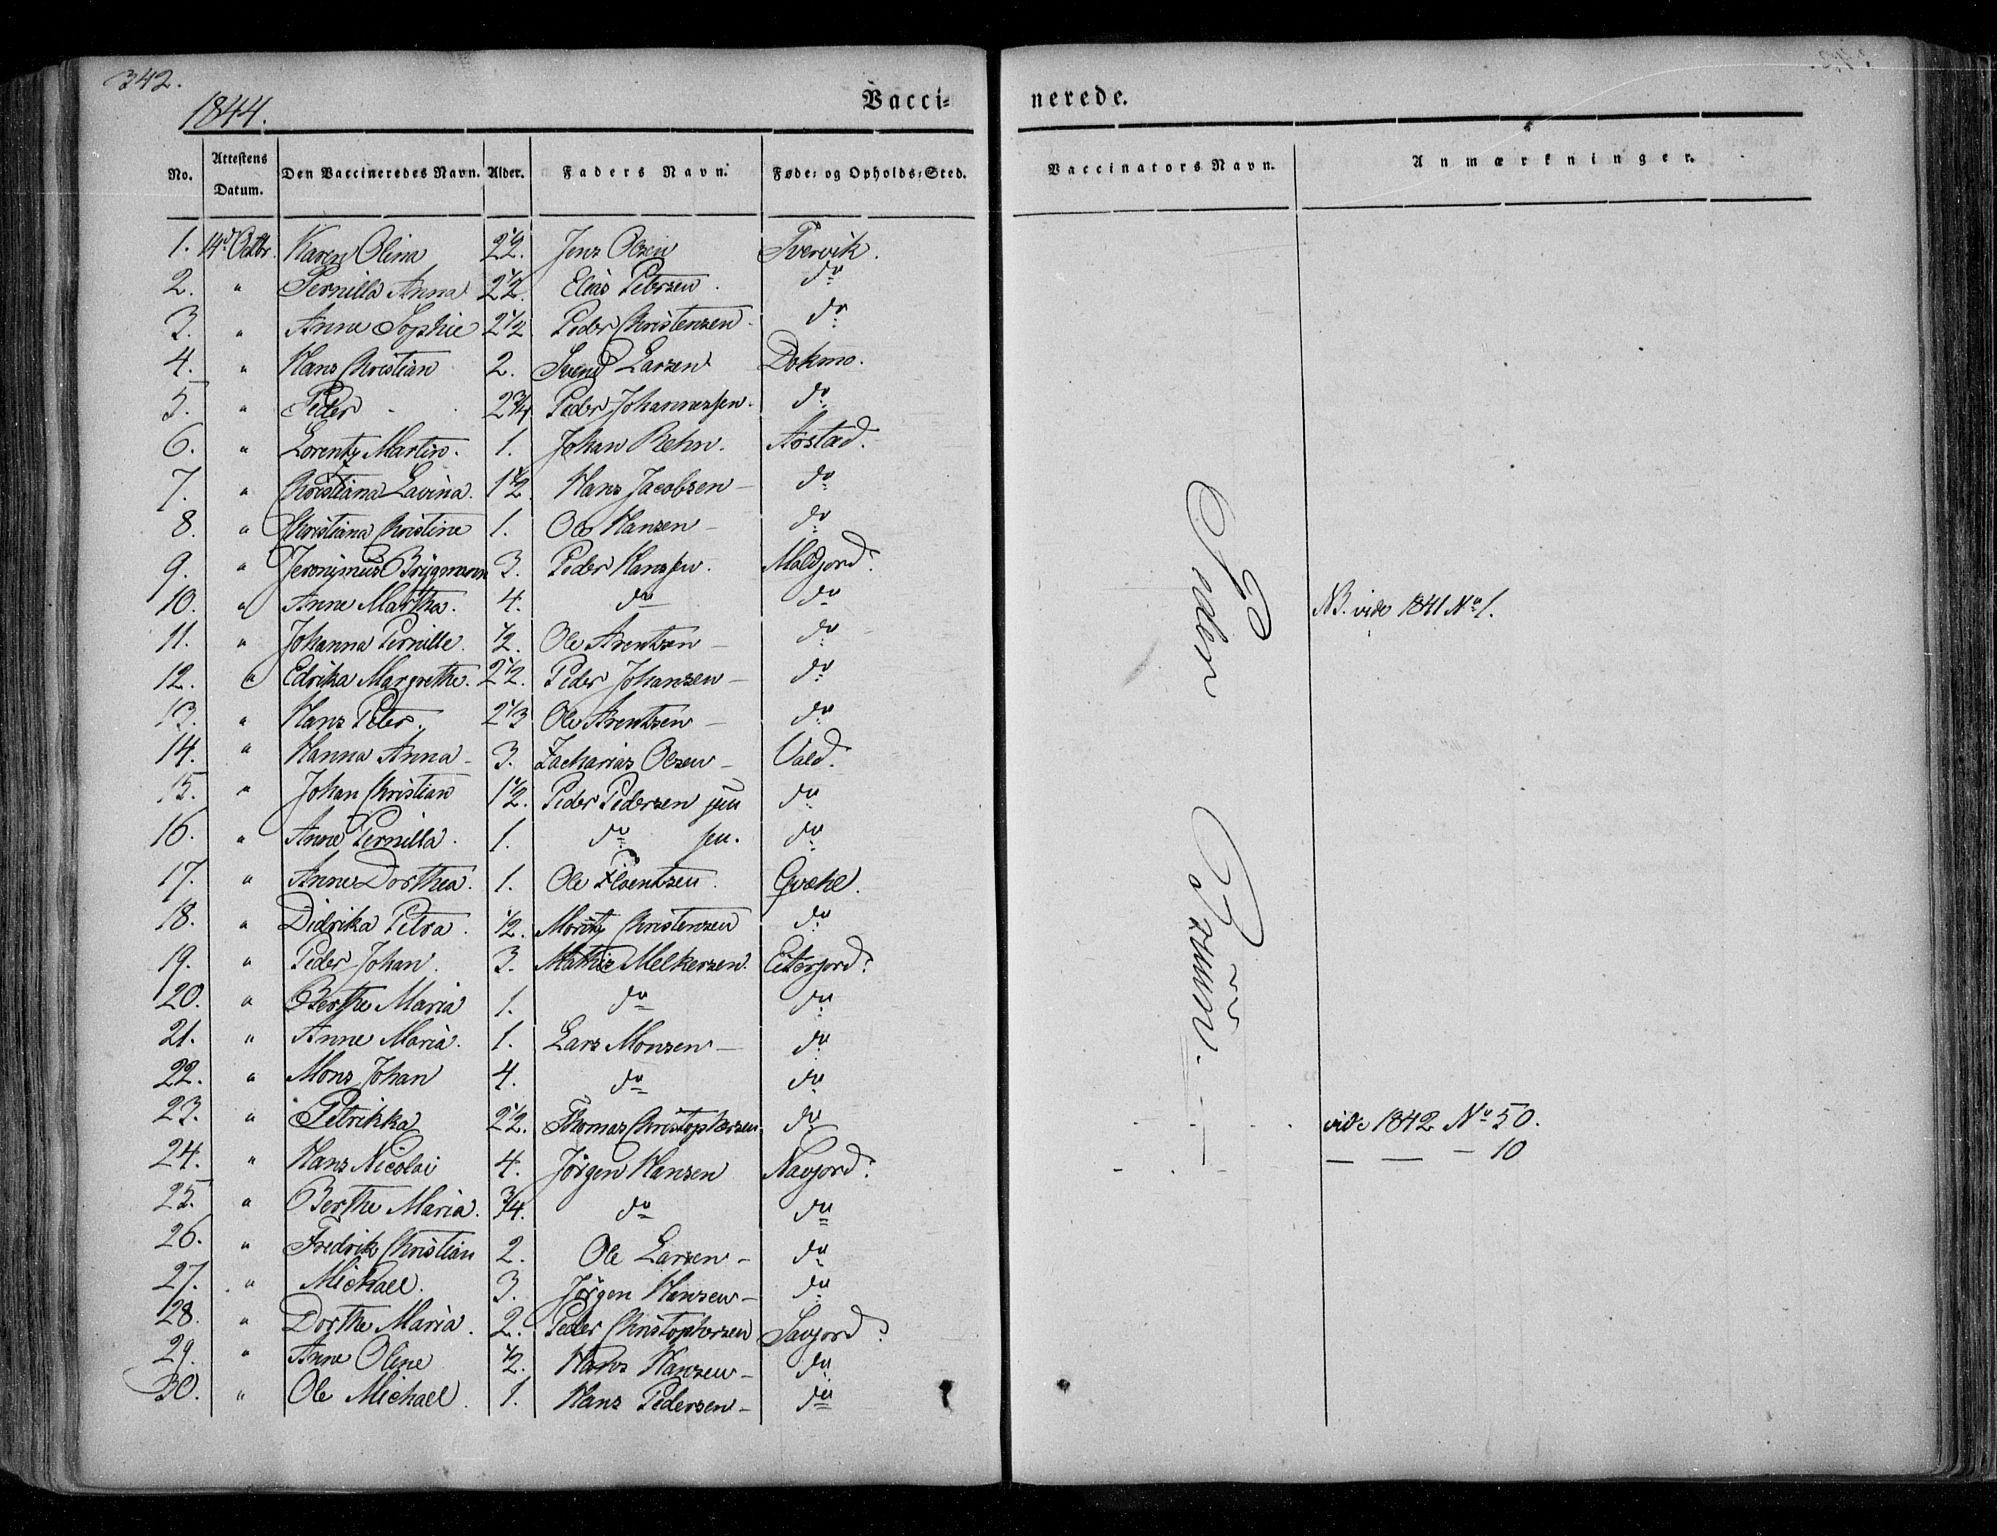 342.
1844.
Vacci=
nerede.
No. Attestens Datum. Den Vaccineredes Navn. Alder. Faders Navn. Føde= og Opholds=Sted. Vaccinators Navn. Anmærkninger.
1. 14de Octbr. Karen Olina 2 1/2. Jens Olsen Tvervik.
2. " Pernilla Anna 2 1/2. Elias Petersen. do
3. " Anne Sophie 2 1/2 Peder Christensen. do
4. " Hans Christian 2. Svend Larsen Dokmo.
5. " Peder 2 3/4 Peder Johannessen. do
6. " Lorentz Martin. 1. Johan Rehn. Arstad.
7. " Christiana Lavina. 1 1/2. Hans Jacobsen – do
8. " Christiana Christine 1. Ole Hansen – do
9. " Jeronimus Brygmann 3. Peder Hanssen. Maldjord.
10. " Anne Martha. 4. do do NB. vide 1841 No 1.
11. " Johanna Pernille. 1/2. Ole Arentsen – do
12. " Edrika Margrethe. 2 1/2. Peder Johansen – do
13. " Hans Peter. 2 1/3 Ole Arentsen – do
14. " Hanna Anna – 3. Zacharias Olsen – Vald.
15. " Johan Christian 1 1/2. Peder Pedersen jun do
16. " Anne Pernilla. 1. do sen. do
17. " Anne Dorthea. 1. Ole Floentsen. Qvæhl.
18. " Didrika Petra. 1/2. Moritz Christensen do
19. " Peder Johan. 3. Mathis Melkersen. Eiterjord.
20. " Berthe Maria 1. do do
21. " Anne Maria. 1. Lars Monsen – do
22. " Mons Johan 4. do do
23. " Petrikka 2 1/2. Thomas Christophersen. do vide 1842 No 50.
24. " Hans Nicolai 4. Jörgen Hansen Navjord. — — – 10
25. " Berthe Maria. 3/4. do do
26. " Fredrik Christian 2. Ole Larsen – do
27. " Michael. 3. Jörgen Hansen – do
28. " Dorthe Maria. 2. Peder Christophersen Savjord.
29. " Anne Oline 1/2. Hans Hansen – do
30. " Ole Michael. 1. Hans Pedersen – do
Peder Brun.